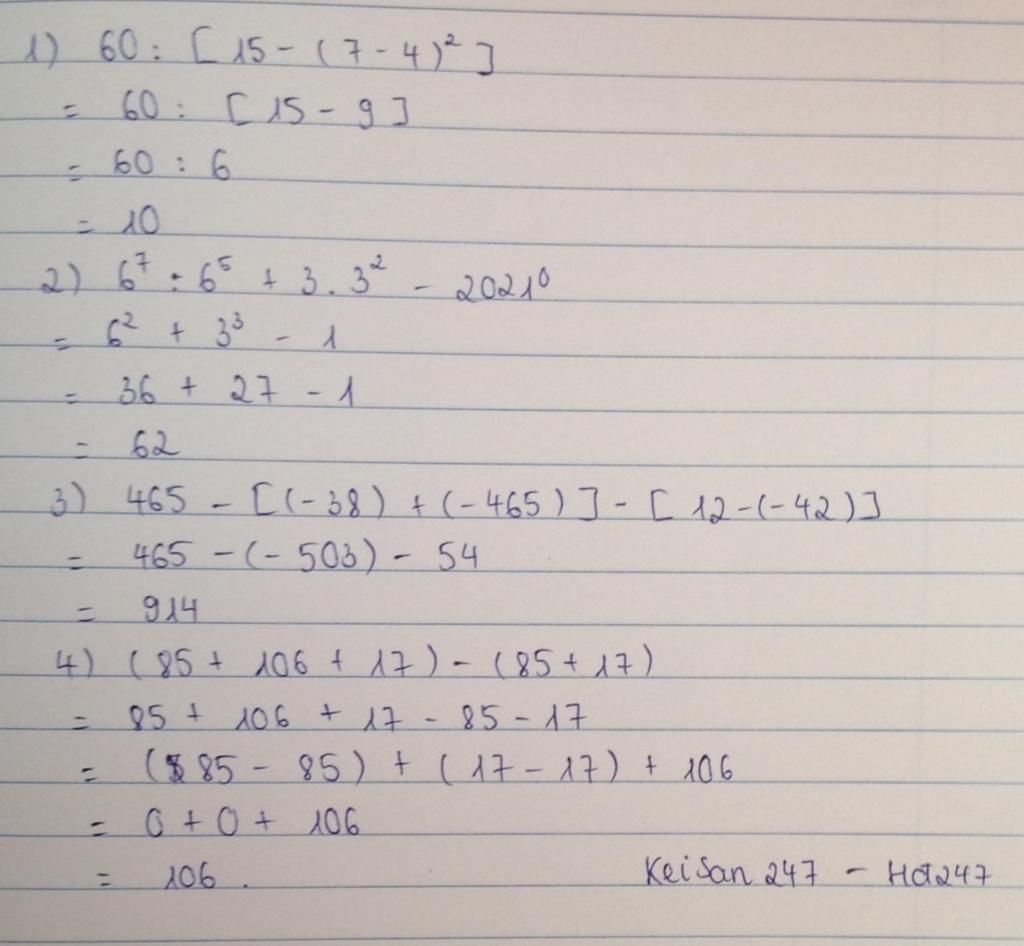 1) 60 : [ 15 - ( 7 - 4 )² ]
= 60 : [ 15 - 9 ]
= 60 : 6
= 10
2) 6⁷ : 6⁵ + 3 . 3² - 2021⁰
= 6² + 3³ - 1
= 36 + 27 - 1
= 62
3) 465 - [ (-38) + (-465) ] - [ 12 - (-42) ]
= 465 - (- 503) - 54
= 914
4) ( 85 + 106 + 17 ) - ( 85 + 17 )
= 85 + 106 + 17 - 85 - 17
= ( 85 - 85 ) + ( 17 - 17 ) + 106
= 0 + 0 + 106
= 106 .
Keisan 247 - Hơ247